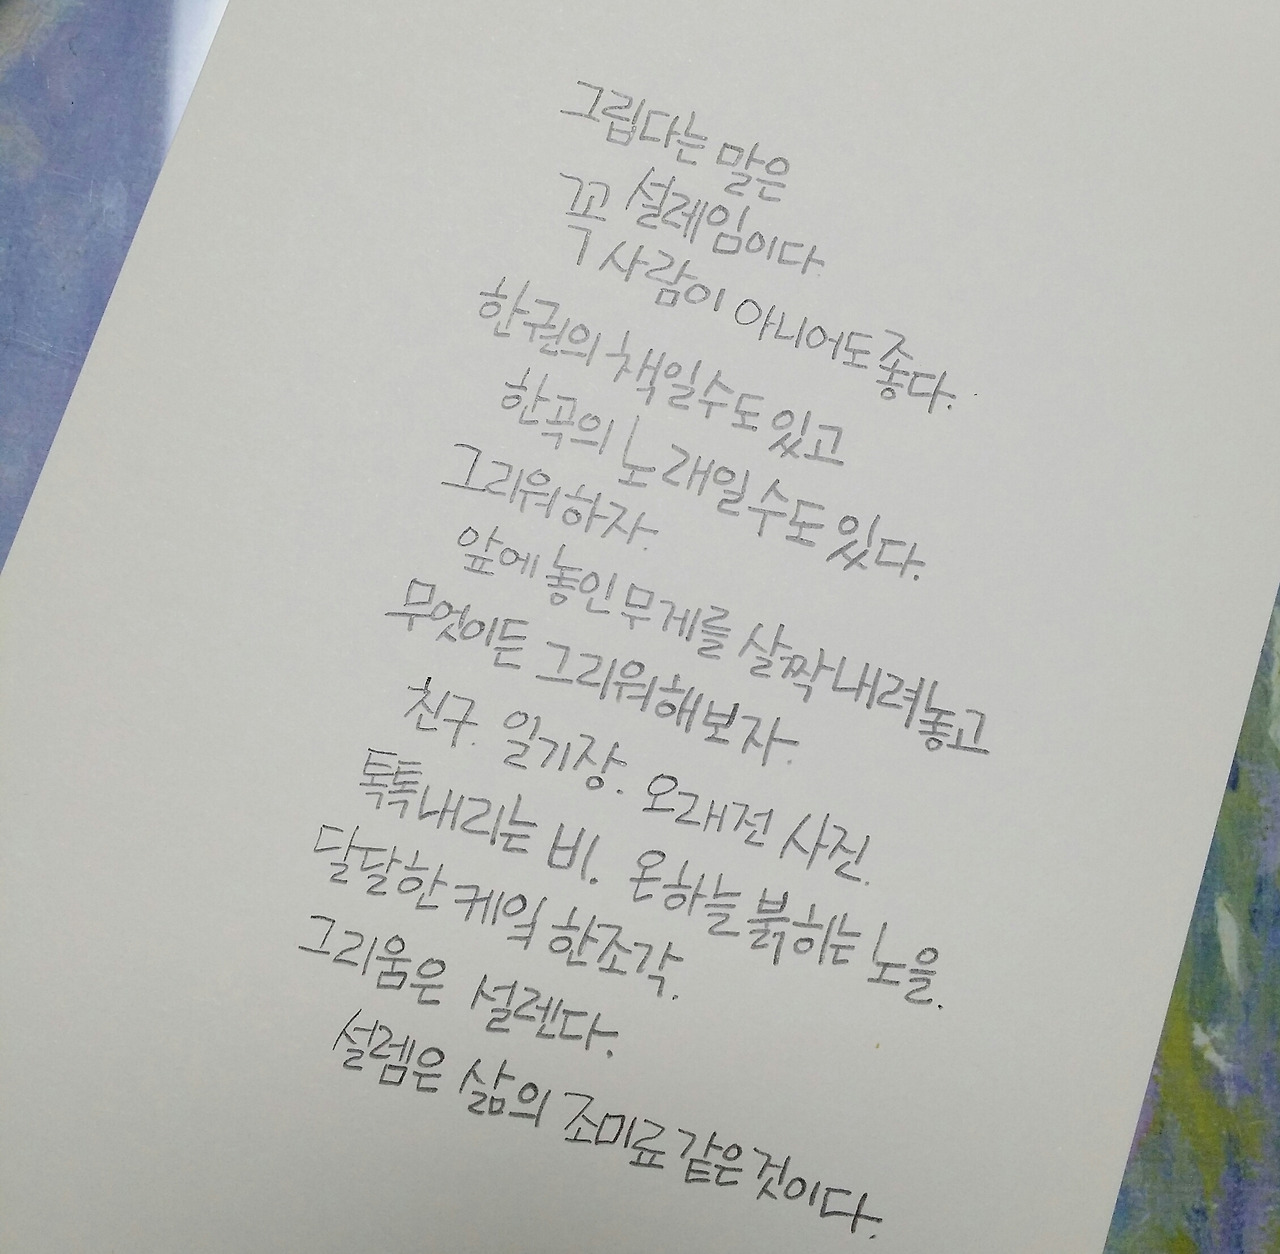 그립다는 말은
설레임이다.
꼭 사람이 아니어도 좋다.
한권의 책일수도 있고
한곡의 노래일수도 있다.
그리워하자.
앞에 놓인 무게를 살짝 내려놓고
무엇이든 그리워해보자.
친구. 일기장. 오래전 사진.
톡톡내리는 비. 온하늘 붉히는 노을.
달달한 케잌 한조각.
그리움은 설렌다.
설렘은 삶의 조미료 같은것이다.